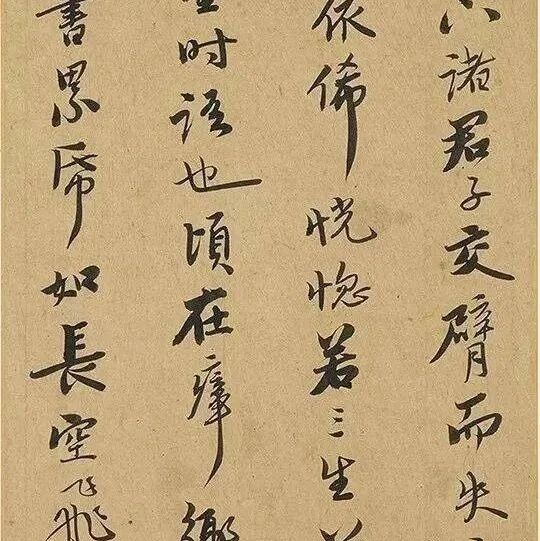 諸君子交臂而失
依俙恍惚若三生
时語也頃在瘴鄉
書累帋如長空飛